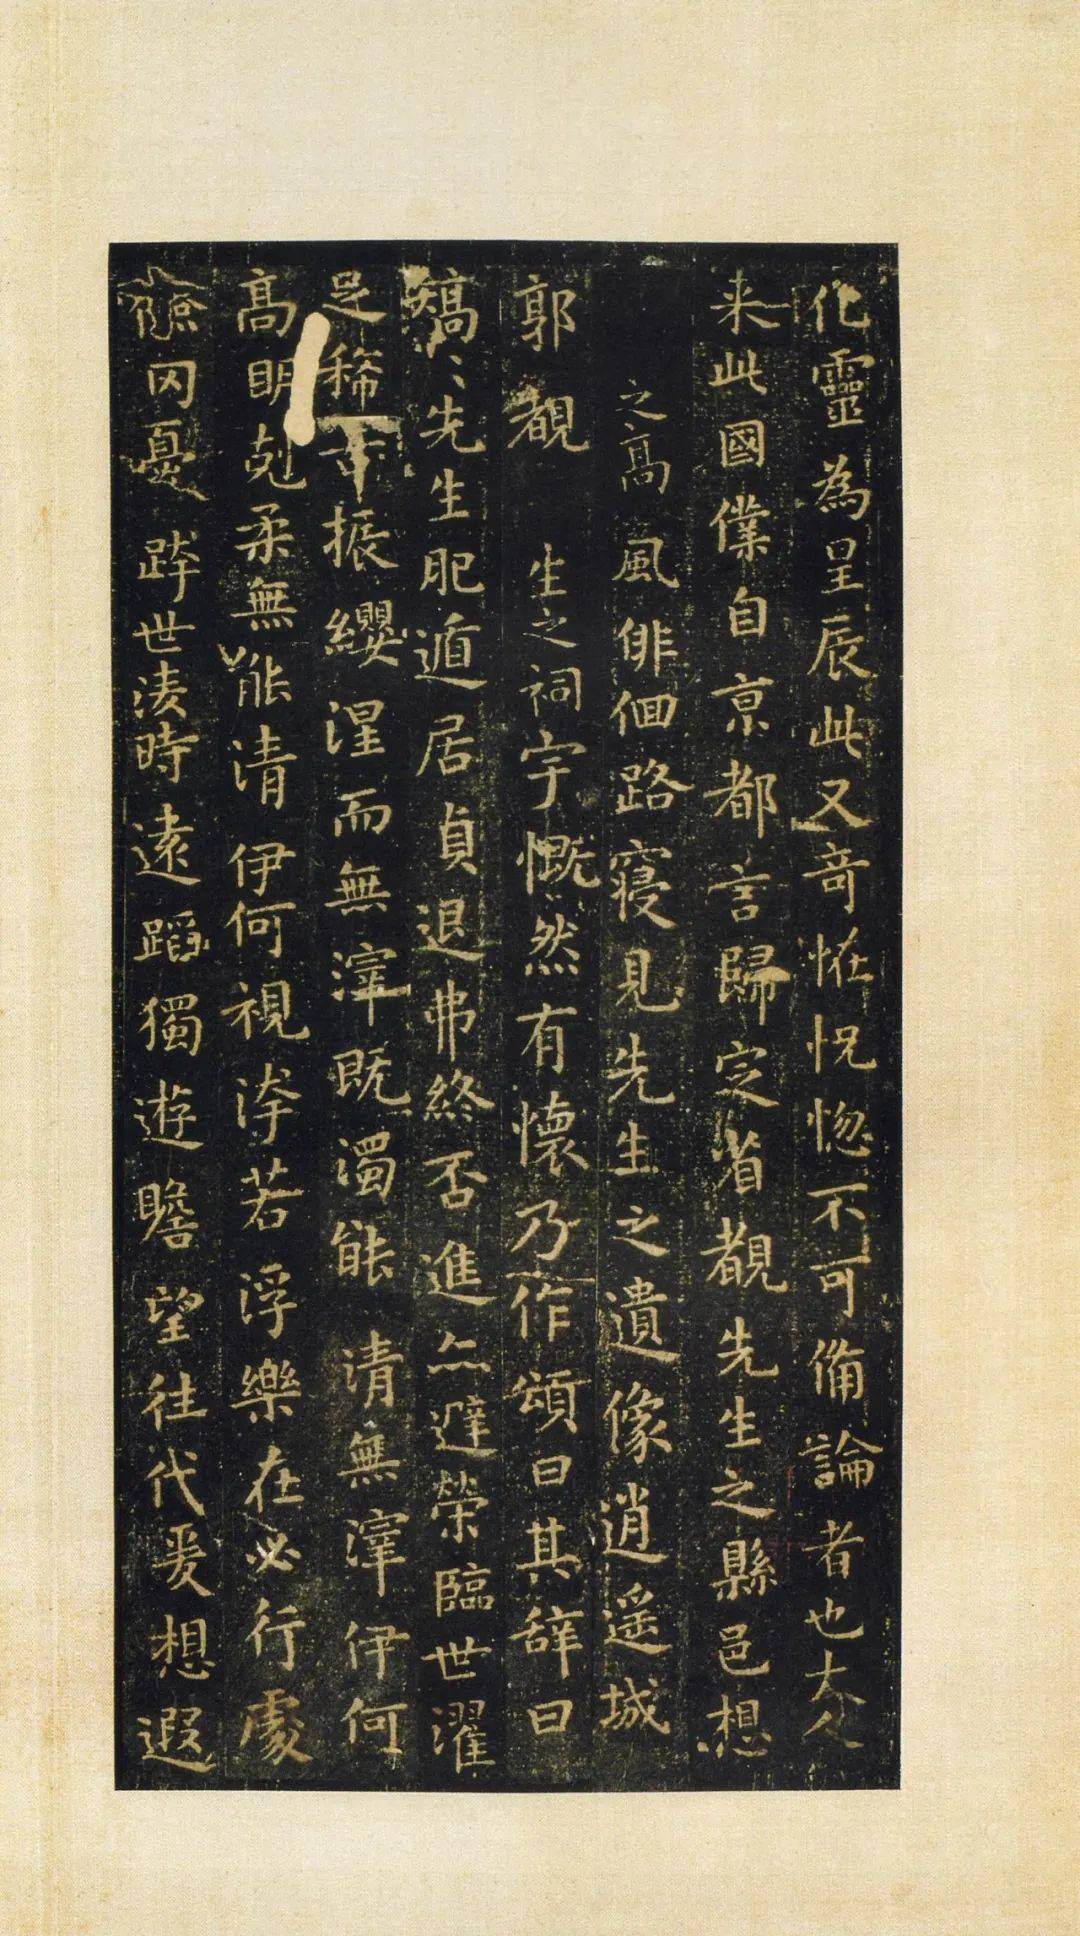 化靈為星辰此又奇怪怳惚不可備論者也大人
来此國僕自京都言歸定省覩先生之縣邑想
之高風俳佪路寢見先生之遺像逍遥城
郭覩生之祠宇慨然有懷乃作頌曰其辞曰
矯〻先生肥遁居貞退弗終否進亦避榮臨世濯
足稀古振纓涅而無滓既濁能清無滓伊何
高明克柔無能清伊何視洿若浮樂在必行處
儉罔憂跨世淩時遠蹈獨遊瞻望往代爰想遐